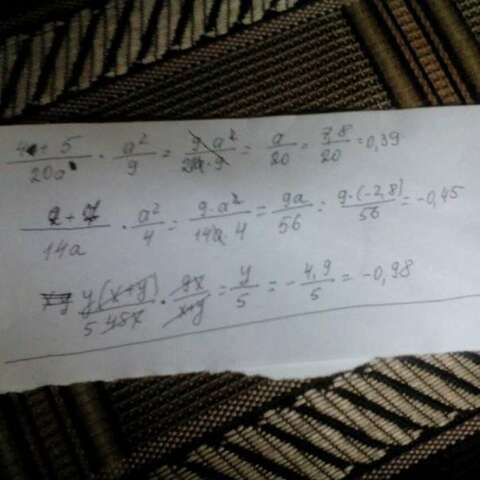 4+5/20a · a²/9 = 9·a²/20a·9 = a/20 = 7,8/20 = 0,39
2+7/14a · a²/4 = 9·a²/14a·4 = 9a/56 = 9·(-2,8)/56 = -0,45
y(x+y)/5 45x · 9x/x+y = y/5 = -4,9/5 = -0,98